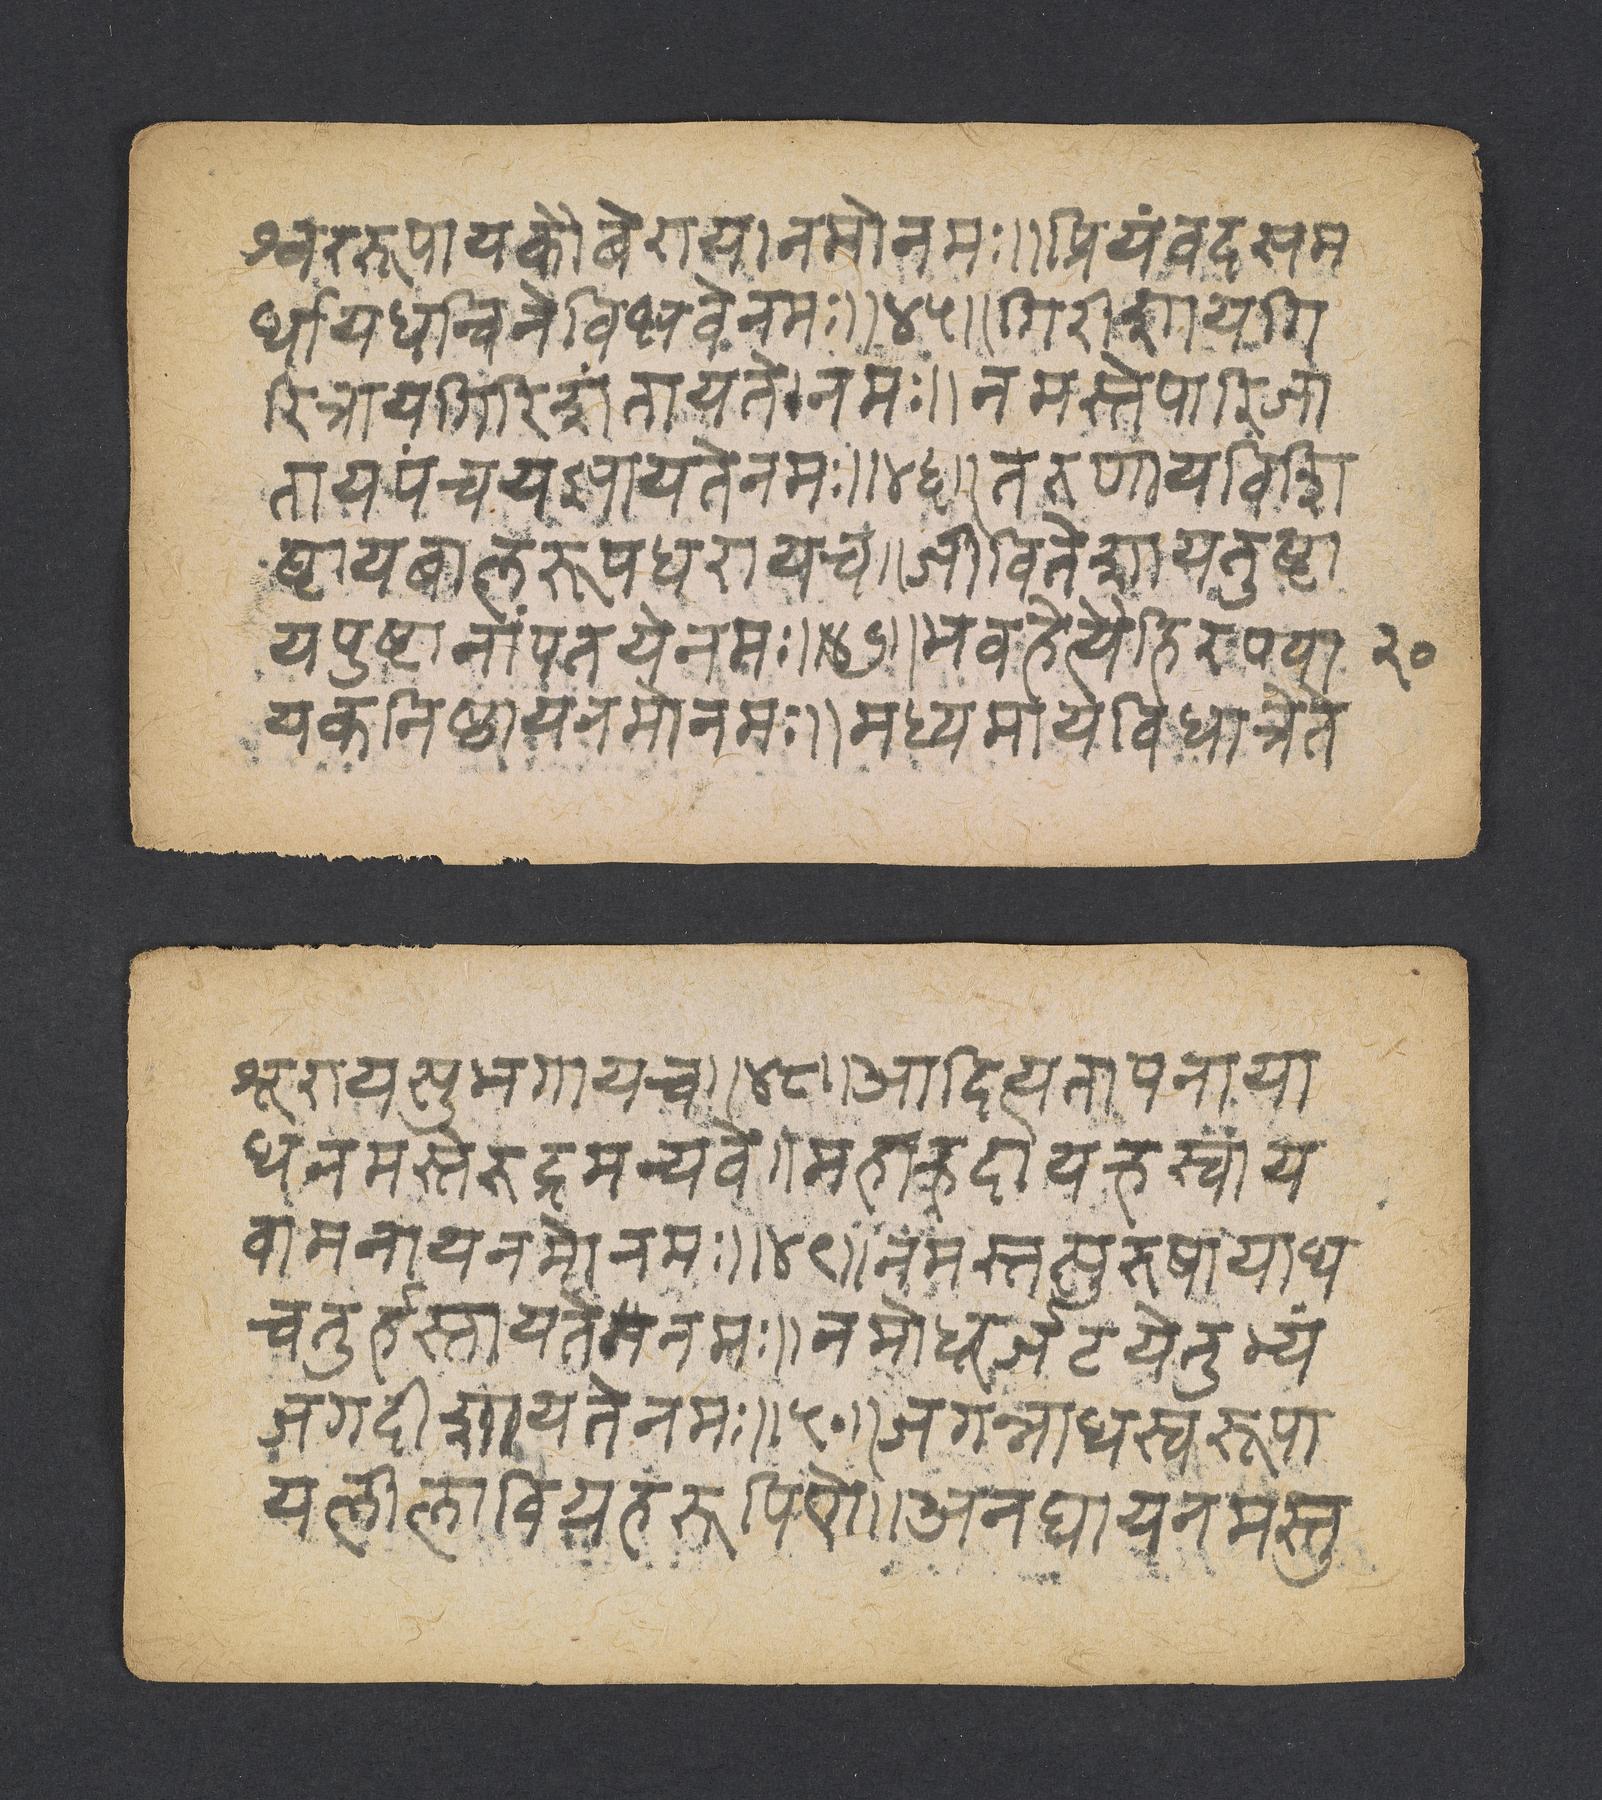 श्वररूपायकौबेराया।नमोनमः॥प्रियंवदसम
र्थायधन्विनेविश्ववेनमः॥४५॥गिरीशायगि
रित्रायगिरिशंतायते।नमः॥नमस्तेपारिजा
तायपंचयज्ञायतेनमः॥४६॥तरुणायविशि
ष्टायबालरूपधरायच॥जीवितेशायतुष्टा
यपुष्टानांपतयेनमः॥४७॥भवहेत्यैहिरण्या २०
यकनिष्ठायनमोनमः॥मध्यमायविधात्रेते
श्रूरायसुभगायच॥४८॥आदित्यतापनाया
थनमस्तेरुद्रमन्यवे॥महाह्रदायह्रस्वाय
वामनायनमोनमः॥४९॥नमस्तत्पुरुषायाथ
चतुर्हस्तायतेनमः॥नमोधूर्जटयेतुभ्यं
जगदीशायतेनमः॥५०॥जगन्नाथस्वरूपा
यलीलाविग्रहरूपिणे॥अनघायनमस्तु